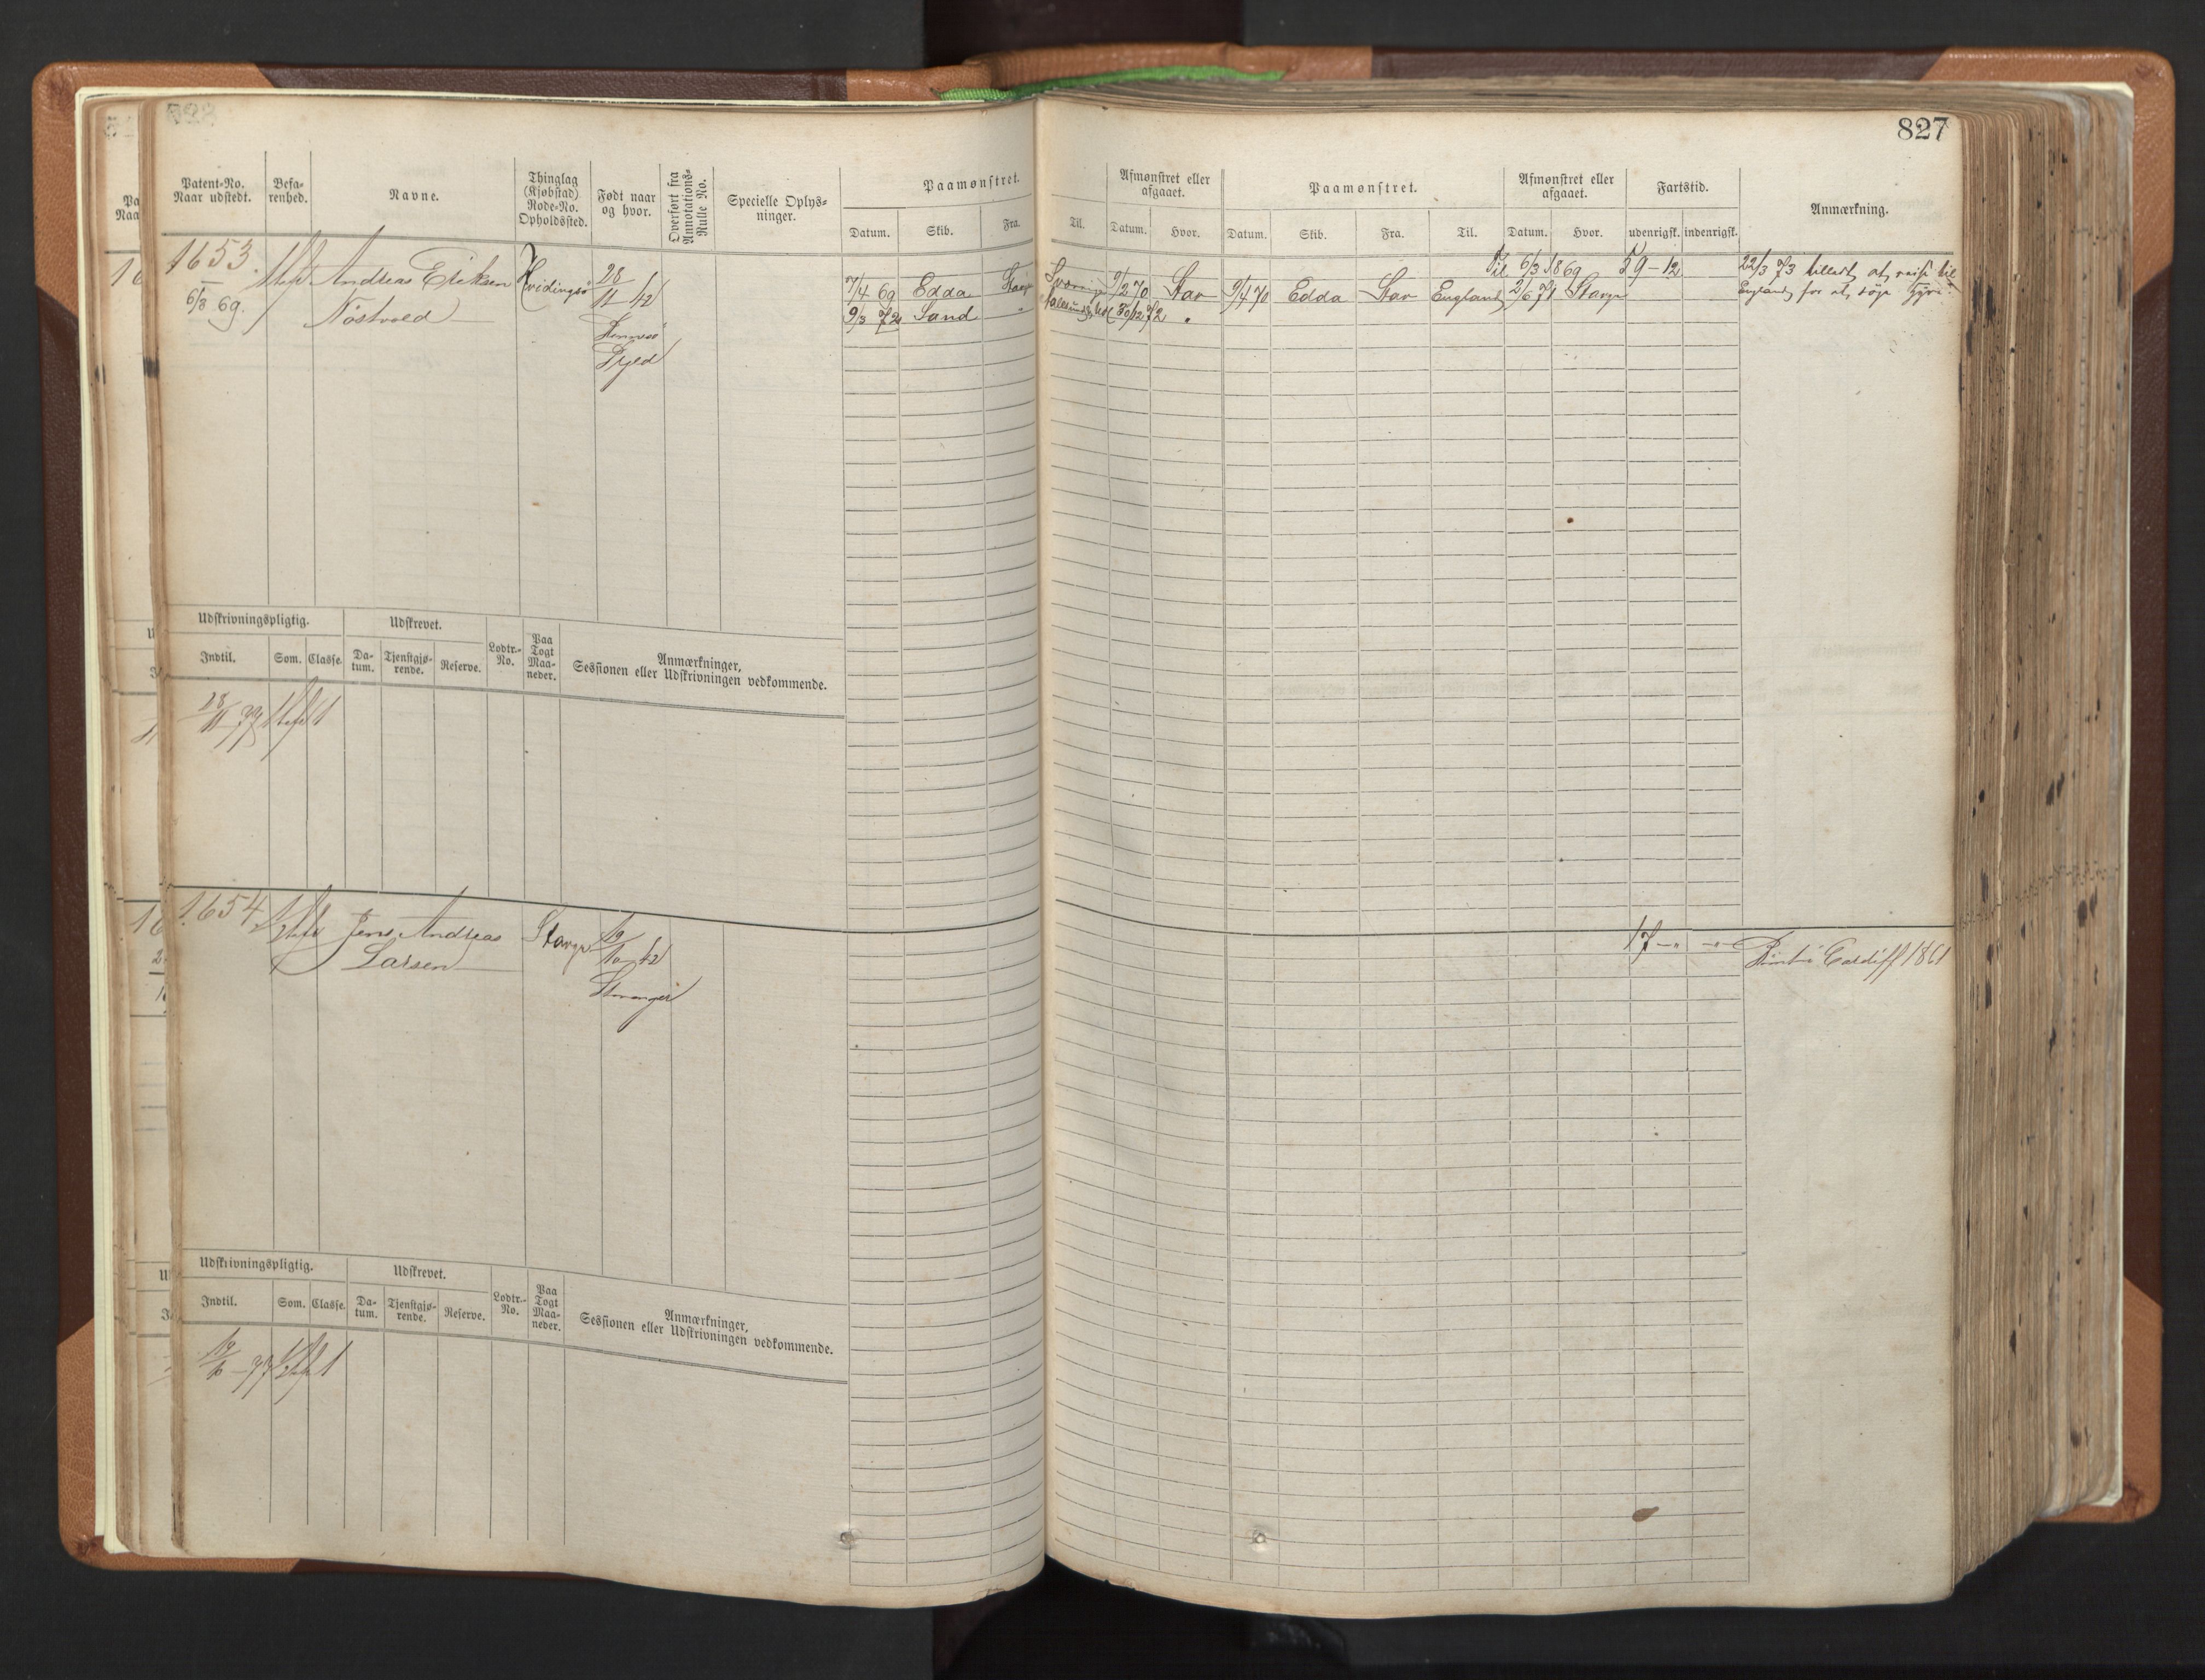 827
Patent-No.
Naar udstedt.
Befa-
renhed.
Navne.
Thinglag
(Kjøbstad)
Rode-No.
Opholdssted.
Født naar
og hvor.
Overført fra
Annotations-
Rulle No.
Specielle Oplys-
ninger.
Paamønstret.
Datum.
Skib.
Fra.
Til.
Afmønstret eller
afgaaet.
Datum.
Hvor.
Paamønstret.
Datum.
Skib.
Fra.
Til.
Afmønstret eller
afgaaet.
Datum.
Hvor.
Fartstid.
udenrigsk.
indenrigsk.
Anmærkning.
1653.
6/3 69.
Andreas Eriksen
Nöstvold
Hvidingsö
28/11 42
7/4 69 Edda
9/3 72 Sand "
9/2 70 Stav 9/4 70 Edda Stav England 2/6 71 Stavgr
30/12 72 "
Til 6/3 1869 29-12
22/3 73 tilladt at reise til
England for at söge Hyre.
Udskrivningspligtig.
Indtil.
Som.
Classe.
Udskrevet.
Da-
tum.
Tjenstgjø-
rende.
Reserve.
Lodtr.-
No.
Paa
Togt
Maa-
neder.
Anmærkninger,
Sessionen eller Udskrivningen vedkommende.
28/11 77 1
1654
Jens Andreas
Larsen
Stavgr
19/10 42
Stavanger
17 - " - " -
Römt i Cardiff 1861
Udskrivningspligtig.
Indtil.
Som.
Classe.
Udskrevet.
Da-
tum.
Tjenstgjø-
rende.
Reserve.
Lodtr.-
No.
Paa
Togt
Maa-
neder.
Anmærkninger,
Sessionen eller Udskrivningen vedkommende.
19/10 77 1